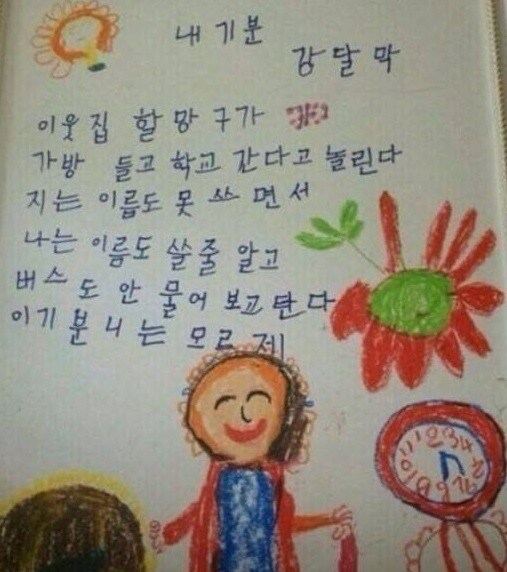 내 기분
강달막
이웃집 할망구가
가방 들고 학교 간다고 놀린다
지는 이름도 못 쓰면서
나는 이름도 쓸줄 알고
버스도 안 물어 보고 탄다
이기분 니는 모르제
11 12 1 2 3 4 5 6 7 8 9 10